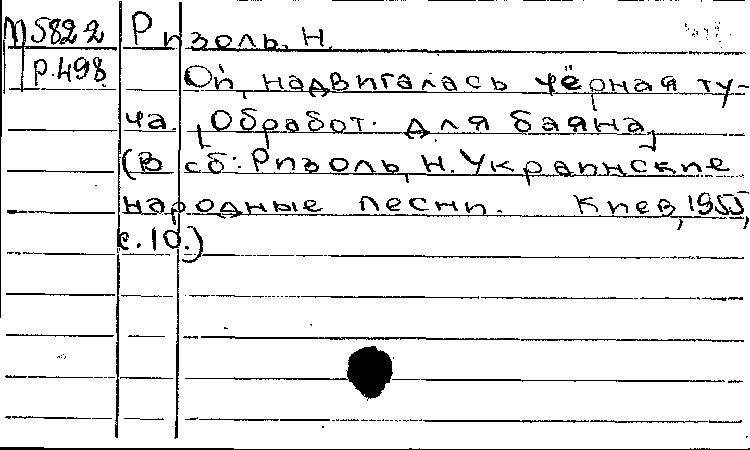 М5822 Ризоль, Н.
Р.498
Ой, надвигалась чёрная ту-
ча. [Обработ. для баяна]
(В сб: Ризоль, Н. Украинские
народные песни. Киев, 1955,
с.10.)